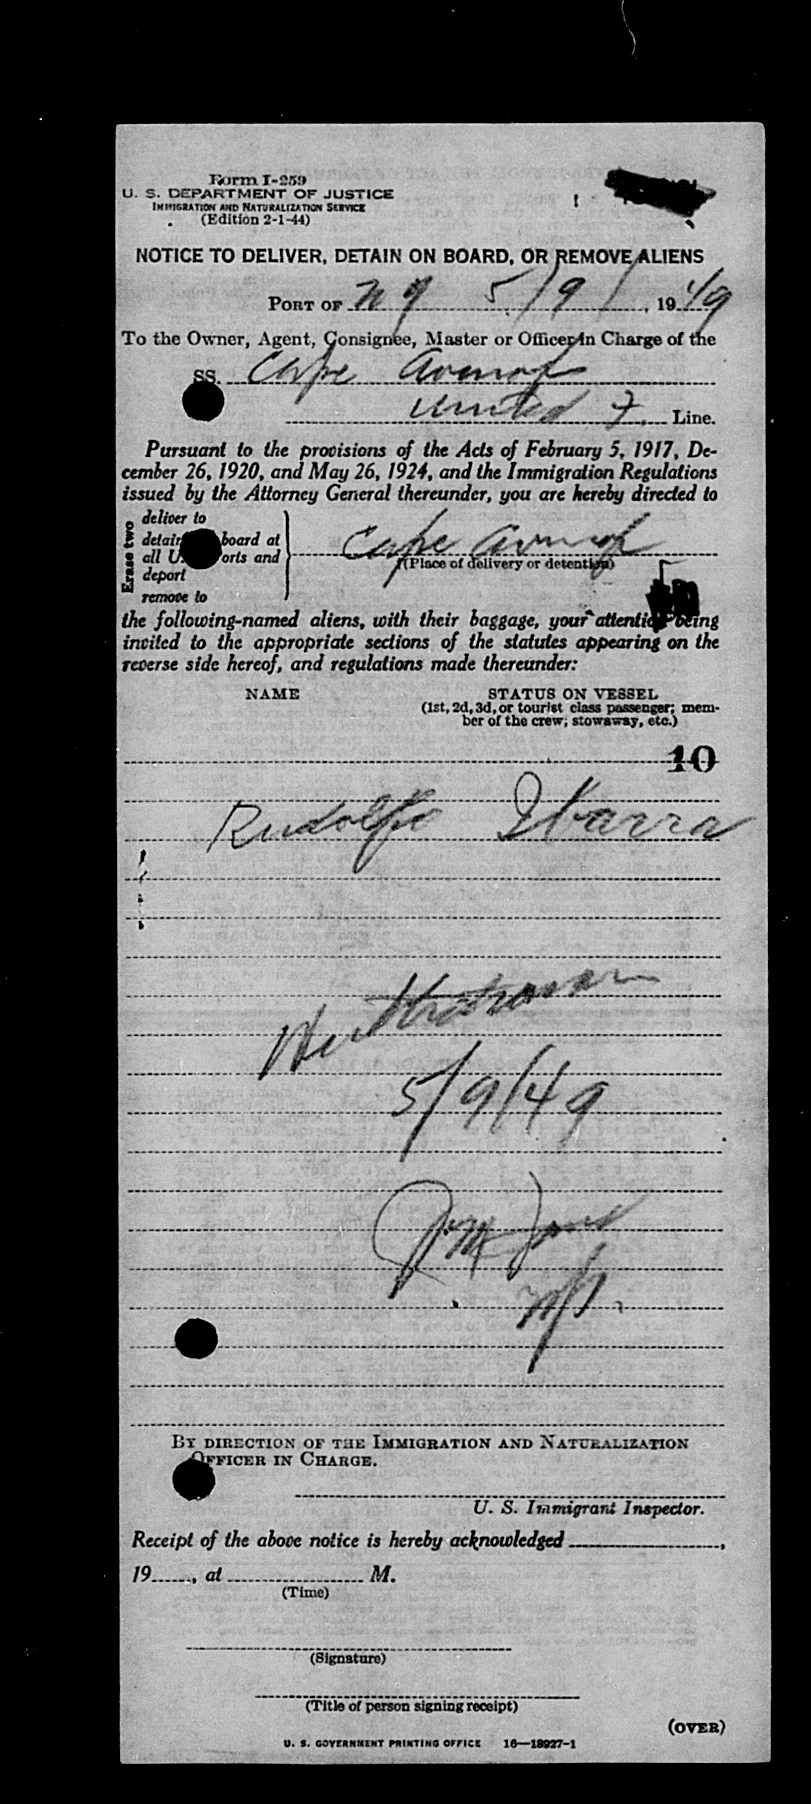 Form I-259
U. S. DEPARTMENT OF JUSTICE
IMMIGRATION AND NATURALIZATION SERVICE
(Edition 2-1-44)
NOTICE TO DELIVER, DETAIN ON BOARD, OR REMOVE ALIENS
PORT OF N Y 5/9/, 1949
To the Owner, Agent, Consignee, Master or Officer in Charge of the
SS. Cape Avinof
United F. Line.
Pursuant to the provisions of the Acts of February 5, 1917, De-
cember 26, 1920, and May 26, 1924, and the Immigration Regulations
issued by the Attorney General thereunder, you are hereby directed to
Erase two
deliver to
detain board at
all U. orts and
deport
remove to
Cape Avinof
(Place of delivery or detention)
the following-named aliens, with their baggage, your attention being
invited to the appropriate sections of the statutes appearing on the
reverse side hereof, and regulations made thereunder:
NAME STATUS ON VESSEL
(1st, 2d, 3d, or tourist class passenger; mem-
ber of the crew; stowaway, etc.)
10
Rudolfo Ibarra
5/9/49
BY DIRECTION OF THE IMMIGRATION AND NATURALIZATION
OFFICER IN CHARGE.
U. S. Immigrant Inspector.
Receipt of the above notice is hereby acknowledged ,
19 , at M.
(Time)
(Signature)
(Title of person signing receipt)
(OVER)
U. S. GOVERNMENT PRINTING OFFICE 16—18927-1